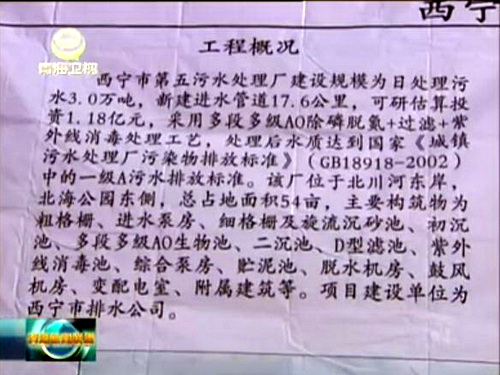 西宁
青海卫视
工程概况
西宁市第五污水处理厂建设规模为日处理污
水3.0万吨，新建进水管道17.6公里，可研估算投
资1.18亿元，采用多段多级AO除磷脱氮+过滤+紫
外线消毒处理工艺，处理后水质达到国家《城镇
污水处理厂污染物排放标准》（GB18918-2002）
中的一级A污水排放标准。该厂位于北川河东岸，
北海公园东侧，总占地面积54亩，主要构筑物为
粗格栅、进水泵房、细格栅及旋流沉砂池、初沉
池、多段多级AO生物池、二沉池、D型滤池、紫外
线消毒池、综合泵房、贮泥池、脱水机房、鼓风
机房、变配电室、附属建筑等。项目建设单位为
西宁市排水公司。